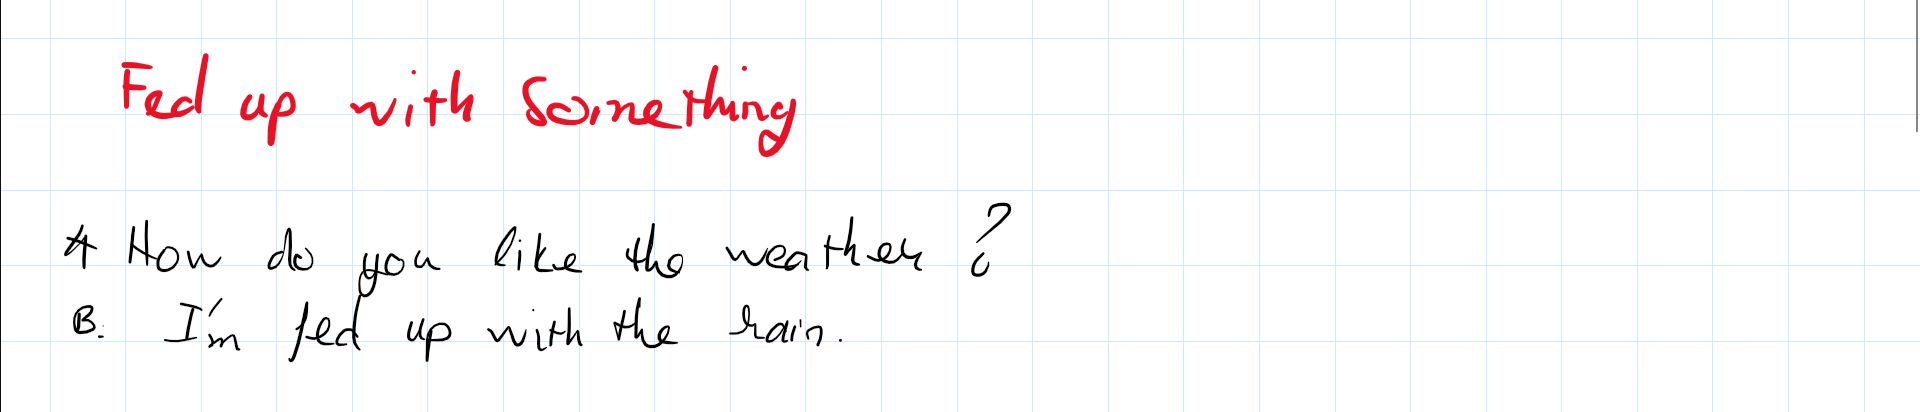 Fed up with Something
A How do you like the weather?
B. I'm fed up with the rain.